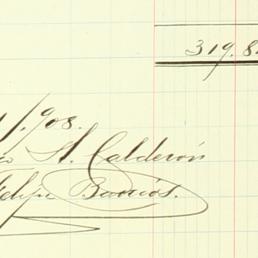 319.8
1/908.
A. Calderón
Felipe Barrios.